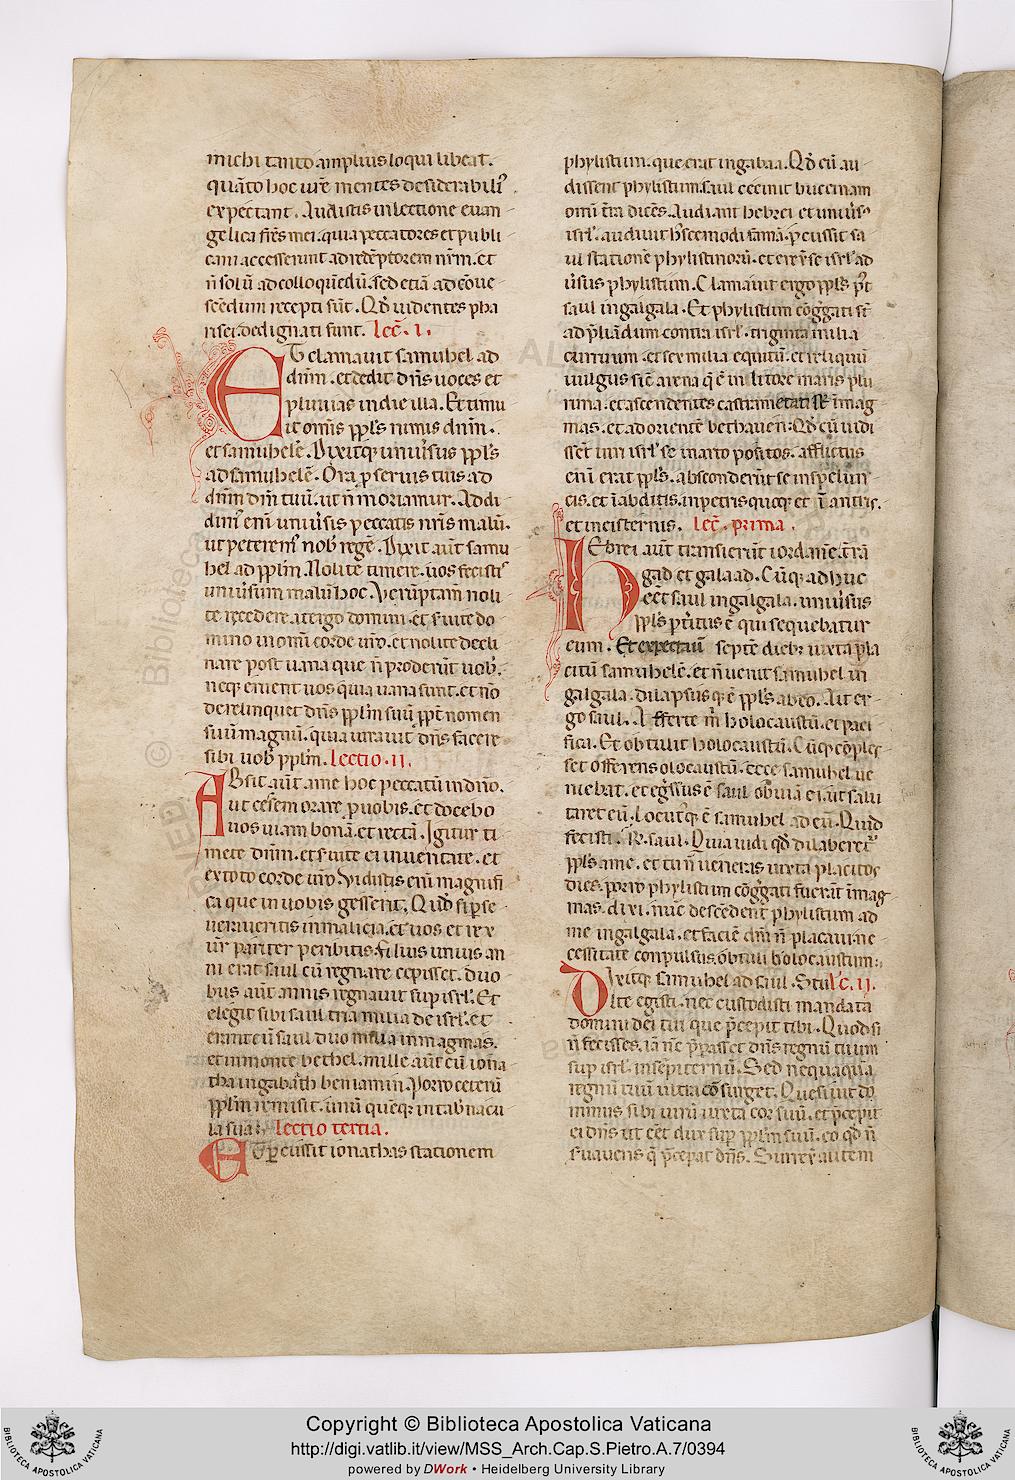 michi tanto amplius loqui libeat.
quãto hoc ur̃e mentes desiderabili᷑
expectant. Audistis in lectione euan-
gelica fr̃es mei. quia peccatores et publi-
cani accesserunt ad redẽptorem nr̃m. et
ñ solũ ad colloquẽdũ. sed etiã ad cõue-
scẽdum recepti sũt. Qð uidentes pha
risei. dedignati sunt. lec̃. I.
ET clamauit samuhel ad
dñm. et dedit dñs uoces et
pluuias in die illa. Et timu
it omĩs ppl̃s nimis dñm.
et samuhelẽ. Dixitq; uniũsus ppl̃s
ad samuhelẽ. Ora ꝓ seruis tuis ad
dñm dm̃ tuũ. ut ñ moriamur. Addi-
dim᷒ enĩ uniũsis peccatis nr̃is malũ.
ut peterem᷒ nob᷒ regẽ. Dixit aũt samu-
hel ad ppl̃m. Nolite timere. uos fecistis
uniũsum malũ hoc. Verũptam noli-
te recedere a tergo domini. et s̃uite do-
mino in omĩ corde ur̃o. et nolite decli
nare post uana que ñ proderũt uob᷒.
neq; eruent uos quia uana sunt. et nõ
derelinquet dñs ppl̃m suũ ꝓpt̃ nomen
suũ magnũ. quia iurauit dñs facere
sibi uob᷒ ppl̃m. Lectio. II.
ABsit aũt a me hoc peccatũ in dño.
ut cessem orare ꝓ uobis. et docebo
uos uiam bonã et rectã. Igitur ti-
mete dñm. et s̃uite ei in ueritate. et
ex toto corde ur̃o. Vidistis enĩ magnifi
ca que in uobis gesserit. Quð si ꝑse-
ueraueritis in malicia. et uos et rex
ur̃ pariter peribitis. Filius unius an
ni erat saul cũ regnare cepisset. duo
bus aũt annis regnauit sup isrl̃. Et
elegit sibi saul tria milia de isrl̃. et
erant cũ saul duo milia in magmas.
et in monte bethel. mille aũt cũ iona
tha in gabath beniamin. Porro ceterũ
ppl̃m remisit. unũ quẽq; in tab̃nacu-
la sua. Lectio tertia.
ET ꝑcussit ionathas stationem
phylistium. que erat in gabaa. Qð cũ au-
dissent phylistium. saul cecinit buccinam
omĩ tr̃a dicẽs. Audiant hebrei. et uniũs᷒
isrl̃. audiuit hʼscemodi famã. ꝑcussit sa
ul stationẽ phylistinorũ. et erexit se isrl̃ ad
ũsus phylistium. Clamauit ergo ppl̃s p᷒t
saul in galgala. Et phylistium cõg̃gati st̃
ad p̃liãdum contra isrl̃. triginta milia
curruum. et sex milia equitũ. et reliquũ
uulgus sic̃ arena q̃ ẽ in litore maris plu
rima. et ascendentes castrametati st̃ ĩ mag
mas. et ad orientẽ bethauen. Qð cũ uidi
ssẽt uiri isrl̃ se in arto positos. afflictus
enĩ erat ppl̃s. absconderũt se in spelun-
cis. et ĩ abditis. in petris quoq; et ĩ antris.
et in cisternis. Lec̃. prima.
HEbrei aũt transierũt iordanẽ. tr̃ã
gad et galaad. Cũq; adhuc
eẽt saul in galgala. uniũsus
ppl̃s ꝑt̃ritus ẽ qui sequebatur
eum. Et expectauit septẽ dieb; iuxta pla
citũ samuhelẽ. et ñ uenit samuhel in
galgala. dilapsusq; ẽ ppl̃s ab eo. Ait er-
go saul. Afferte m̃ holocaustũ. et paci
fica. Et obtulit holocaustũ. Cũq; cõples-
set offerens olocaustũ. ecce samuhel ue
niebat. et eg̃ssus ẽ saul obuiã ei. ut salu
taret eũ. Locutq; ẽ samuhel ad eũ. Quid
fecisti. R̃. saul. Quia uidi qð dilaberet᷑
ppl̃s a me. et tu ñ ueneras iuxta placitos
dies. porro phylistium cõg̃gati fuerũt ĩ mag
mas. dixi. nũc descẽdent phylistium ad
me in galgala. et faciẽ dm̃ ñ placaui. ne-
cessitate conpulsus. obtuli holocaustum.
DIxitq; samuhel ad saul. Stul L̃c. IJ.
te egisti. nec custodisti mandata
domini dei tui que p̃cepit tibi. Quod si
ñ fecisses. iã nc̃ p̃parasset dñs regnũ tuum
sup isrl̃ in sẽpiternũ. Sed nequaquã
regnũ tuũ ultra cõsurget. Quesiuit do-
minus sibi uirũ iuxta cor suũ. et p̃cepit
ei dñs ut eẽt dux sup ppl̃m suũ. eo qð ñ
s̃uaueris q̃ p̃cepat dñs. Surrex̃ autem
Copyright © Biblioteca Apostolica Vaticana
http://digi.vatlib.it/view/MSS_Arch.Cap.S.Pietro.A.7/0394
powered by DWork • Heidelberg University Library
BIBLIOTECA APOSTOLICA VATICANA
BIBLIOTECA APOSTOLICA VATICANA